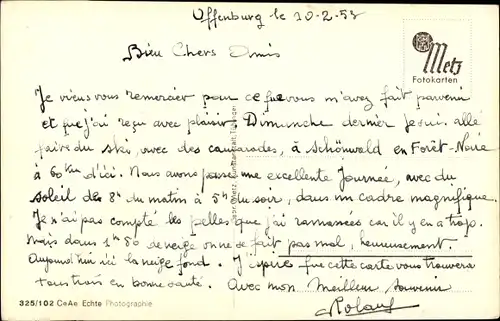 Offenburg le 10-2-53
Bien Chers Amis
Metz
Fotokarten
Je viens vous remercier pour ce que vous m'avez fait parvenir
et que j'ai reçu avec plaisir Dimanche dernier je suis allé
faire du ski, avec des camarades, à Schönwald en Forêt-Noire
à 60 km d'ici. Nous avons passé une excellente Journée, avec du
soleil de 8h du matin à 5h du soir, dans un cadre magnifique.
Je n'ai pas compté les pelles que j'ai ramassées car il y en a trop.
Mais dans 1m50 de neige on ne se fait pas mal, heureusement.
Aujourd'hui ici la neige fond. J'espère que cette carte vous trouvera
tous trois en bonne santé. Avec mon Meilleur Souvenir
Roland
325/102 CeAe Echte Photographie